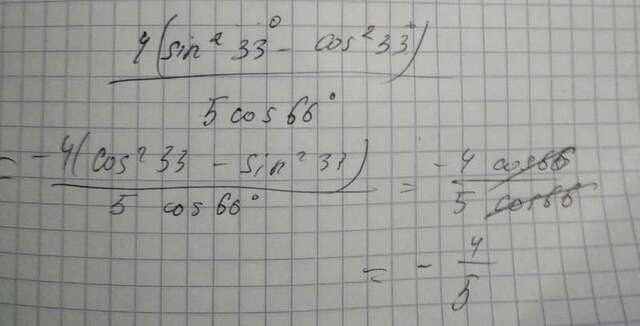 4(sin² 33° - cos² 33°)
5 cos 66°
= -4(cos² 33 - sin² 33) = -4 cos66
5 cos 66° 5 cos66
= - 4
5